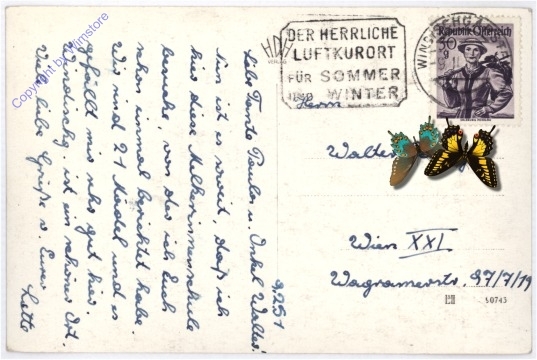 Copyright by Wimstore
HDH
VERLAG
DER HERRLICHE
LUFTKURORT
FÜR SOMMER
UND WINTER
WINDISCHGA
Republik Österreich
30
Herrn
Walter
Wien XXI
Wagramerstr. 97/7/19
50743
9.251
Liebe Tante Paula u. Onkel Walter!
Nun ist es soweit daß ich
hier diese Melkerinnenschule
besuche, von der ich Euch
schon einmal berichtet habe.
Wir sind 21 Mädel und es
gefällt mir sehr gut hier.
Windischg. ist ein schöner Ort.
Viele liebe Grüße v. Eurer